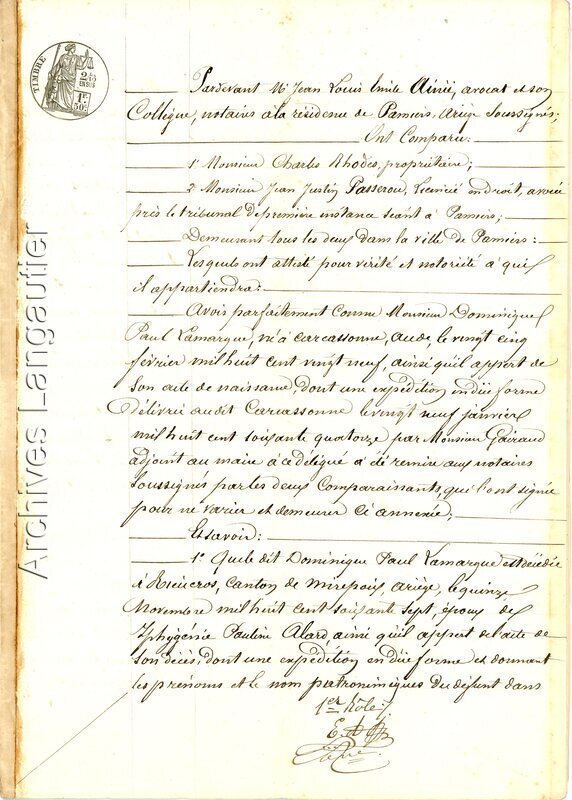 TIMBRE
2/10 EN SUS
1F. 50C.
Pardevant Me Jean Louis Emile Ainié, avocat et son
Collègue, notaires à la résidence de Pamiers, Ariège soussignés;
Ont Comparu:
1° Monsieur Charles Rhodes, propriétaire;
2° Monsieur Jean Justin Passerou, Licencié en droit, avoué
près le tribunal de première instance séant à Pamiers;
Demeurant tous les deux dans la ville de Pamiers:
Lesquels ont attesté pour vérité et notoriété à qui
il appartiendra:
Avoir parfaitement connu Monsieur Dominique
Paul Lamarque, né à Carcassonne, Aude, le vingt cinq
février mil huit cent vingt neuf, ainsi qu'il appert de
son acte de naissance, dont une expédition en dûe forme
délivrée audit Carcassonne le vingt neuf janvier
mil huit cent soixante quatorze par Monsieur Gairaud
adjoint au maire à ce délégué a été remise aux notaires
soussignés par les deux Comparaissants, qui l'ont signée
pour ne varier et demeurer ci annexée;
Et savoir:
1° Que le dit Dominique Paul Lamarque est décédé
à Rieucros, canton de Mirepoix, Ariège, le quinze
Novembre mil huit cent soixante sept, époux de
Iphygénie Pauline Alard, ainsi qu'il appert de l'acte de
son décès, dont une expédition en dûe forme et donnant
les prénoms et le nom patronimiques du défunt dans
1er Rôle
Archives Langautier